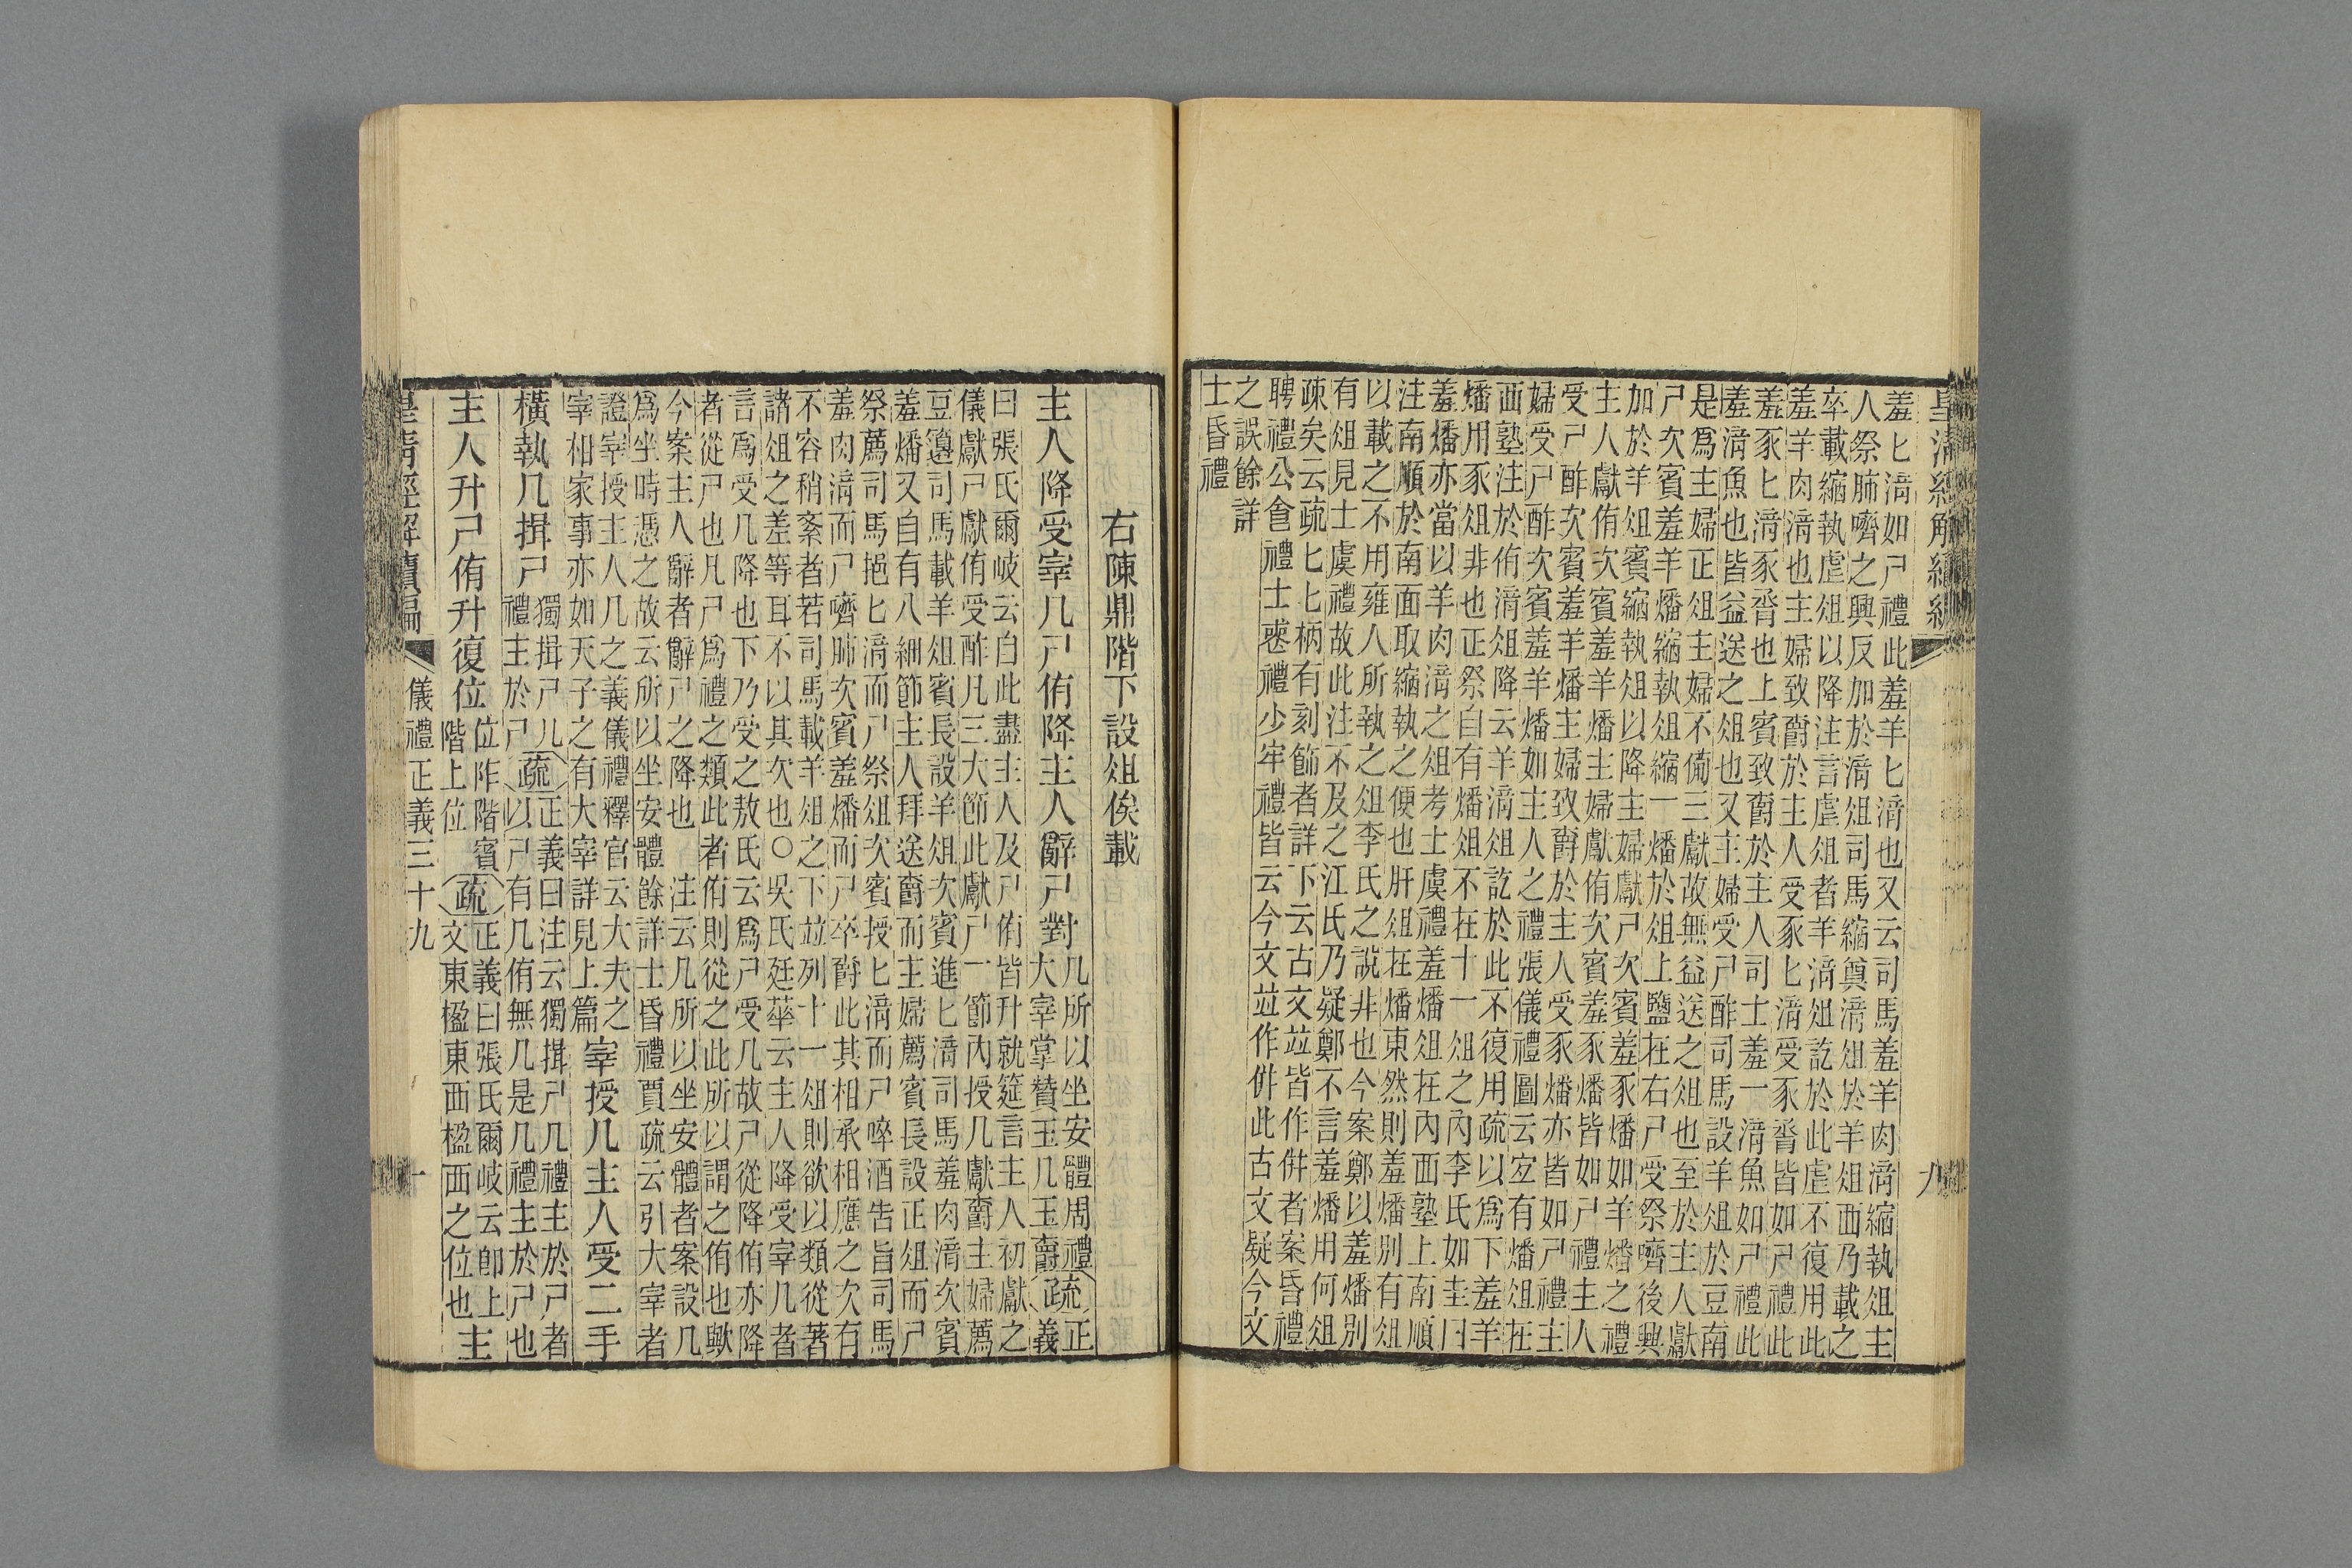 皇清經解續編
九
羞匕湆如尸禮此羞羊匕湆也又云司馬羞羊肉湆縮執俎主
人祭肺嚌之興反加於湆俎司馬縮奠湆俎於羊俎西乃載之
卒載縮執虛俎以降注言虛俎者羊湆俎訖於此虛不復用此
羞羊肉湆也主婦致爵於主人受豕匕湆受豕脀皆如尸禮此
羞豕匕湆豕脀也上賓致爵於主人司士羞一湆魚如尸禮此
羞湆魚也皆益送之俎也又主婦受尸酢司馬設羊俎於豆南
是爲主婦正俎主婦不備三獻故無益送之俎也至於主人獻
尸次賓羞羊燔縮執俎縮一燔於俎上鹽在右尸受祭嚌後興
加於羊俎賓縮執俎以降主婦獻尸次賓羞豕燔如羊燔之禮
主人獻侑次賓羞羊燔主婦獻侑次賓羞豕燔皆如尸禮主人
受尸酢次賓羞羊燔主婦致爵於主人受豕燔亦皆如尸禮主
婦受尸酢次賓羞羊燔如主人之禮張儀禮圖云宜有燔俎在
西塾注於侑湆俎降云羊湆俎訖於此不復用疏以爲下羞羊
燔用豕俎非也正祭自有燔俎不在十一俎之內李氏如圭曰
羞燔亦當以羊肉湆之俎考士虞禮羞燔俎在內西塾上南順
注南順於南面取縮執之便也肝俎在燔東然則羞燔別有俎
以載之不用雍人所執之俎李氏之說非也今案鄭以羞燔別
有俎見士虞禮故此注不及之江氏乃疑鄭不言羞燔用何俎
疎矣云疏匕匕柄有刻飾者詳下云古文竝皆作併者案昏禮
聘禮公食禮士喪禮少牢禮皆云今文竝作併此古文疑今文
之誤餘詳
士昏禮
右陳鼎階下設俎俟載
主人降受宰几尸侑降主人辭尸對几所以坐安體周禮大宰掌贊玉几玉爵疏正義
曰張氏爾岐云自此盡主人及尸侑皆升就筵言主人初獻之
儀獻尸獻侑受酢凡三大節此獻尸一節內授几獻爵主婦薦
豆籩司馬載羊俎賓長設羊俎次賓進匕湆司馬羞肉湆次賓
羞燔又自有八細節主人拜送爵而主婦薦賓長設正俎而尸
祭薦司馬挹匕湆而尸祭俎次賓授匕湆而尸啐酒告旨司馬
羞肉湆而尸嚌肺次賓羞燔而尸卒爵此其相承相應之次有
不容稍紊者若司馬載羊俎之下竝列十一俎則欲以類從著
諸俎之差等耳不以其次也○吳氏廷華云主人降受宰几者
言爲受几降也下乃受之敖氏云爲尸受几故尸從降侑亦降
者從尸也凡尸爲禮之類此者侑則從之此所以謂之侑也歟
今案主人辭者辭尸之降也　注云几所以坐安體者案設几
爲坐時憑之故云所以坐安體餘詳士昏禮賈疏云引大宰者
證宰授主人几之義儀禮釋官云大夫之
宰相家事亦如天子之有大宰詳見上篇宰授几主人受二手
橫執几揖尸獨揖尸几禮主於尸疏正義曰注云獨揖尸几禮主於尸者以尸有几侑無几是几禮主於尸也
主人升尸侑升復位位阼階賓階上位疏正義曰張氏爾岐云卽上文東楹東西楹西之位也主
皇清經解續編　儀禮正義三十九
十